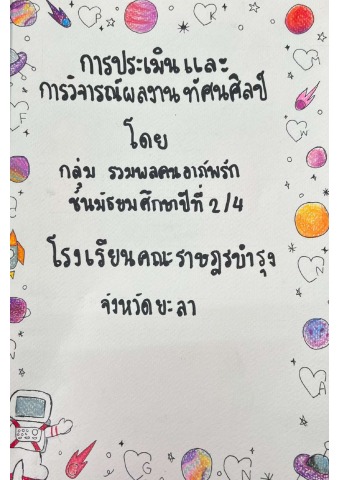 การประเมินและ
การวิจารณ์ผลงานทัศนศิลป์
โดย
กลุ่ม รวมพลคนอาภัพรัก
ชั้นมัธยมศึกษาปีที่ 2/4
โรงเรียนคณะราษฎรบำรุง
จังหวัดยะลา
P
K
F
M
W
N
A
G
N